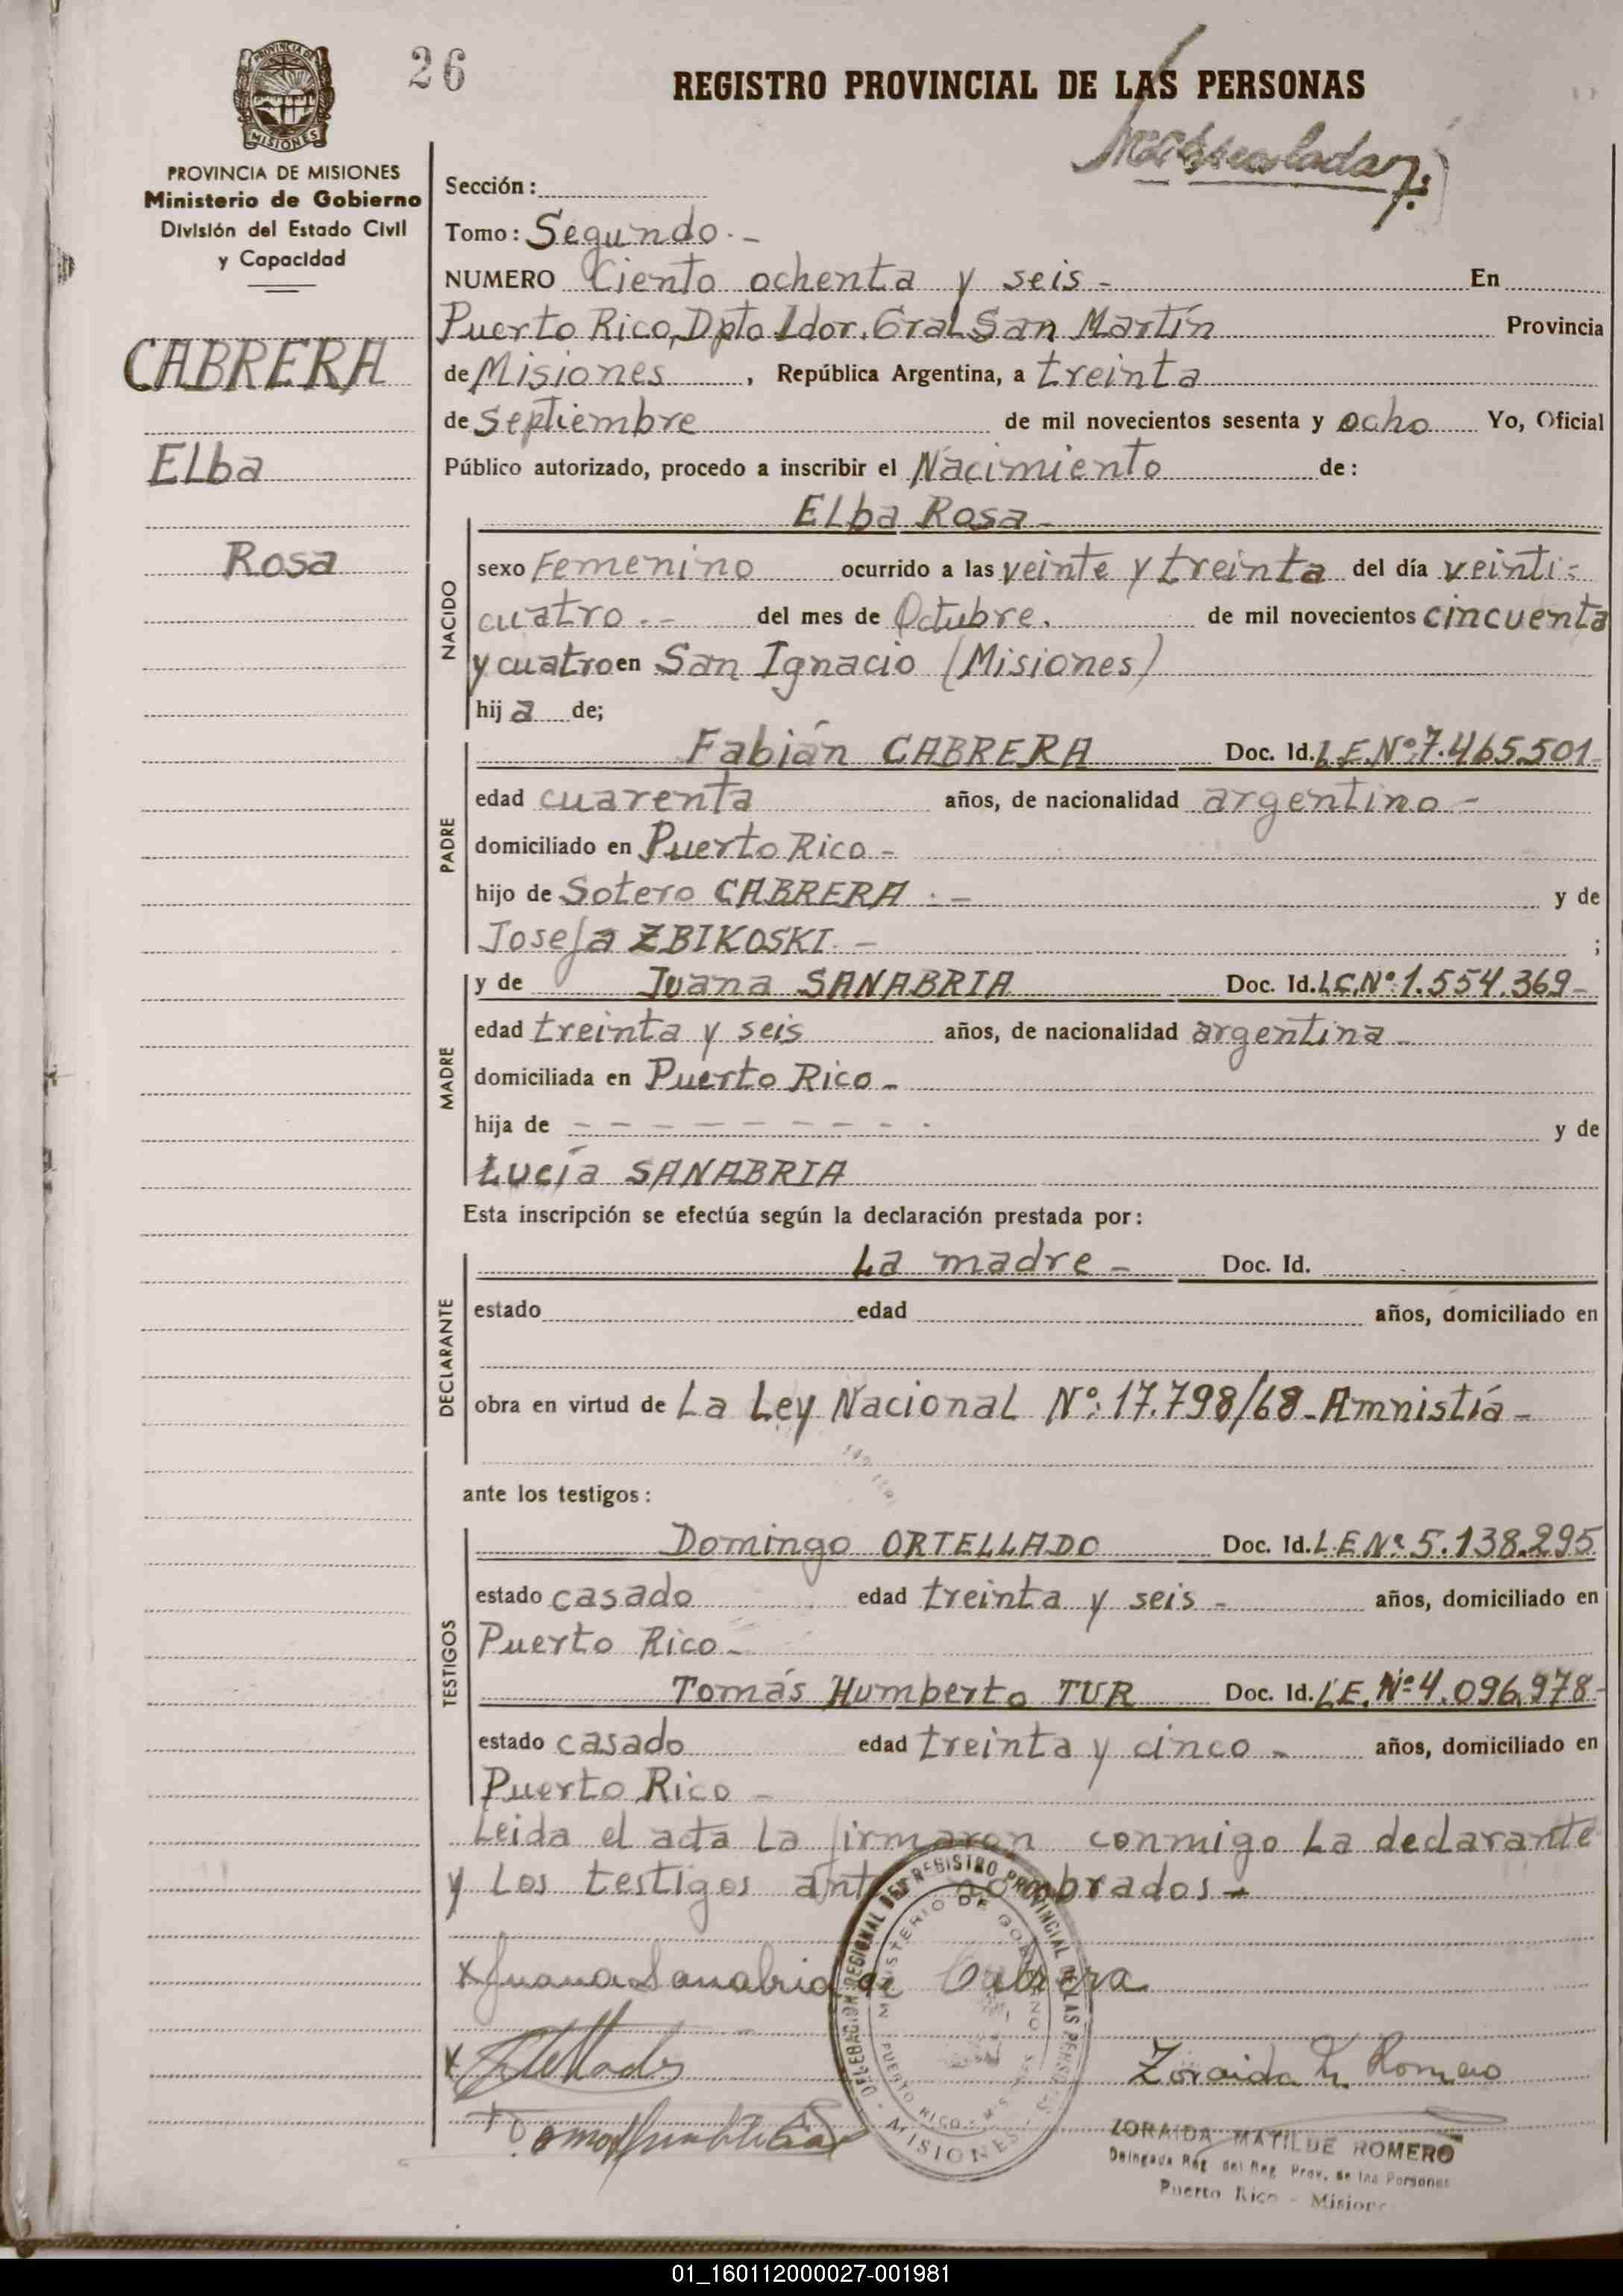 26
REGISTRO PROVINCIAL DE LAS PERSONAS
PROVINCIA DE MISIONES
MISIONES
PROVINCIA DE MISIONES
Ministerio de Gobierno
División del Estado Civil
y Capacidad
CABRERA
Elba
Rosa
Sección:
Tomo: Segundo.-
NUMERO Ciento ochenta y seis - En
Puerto Rico, Dpto Ldor. Gral San Martín Provincia
de Misiones, República Argentina, a treinta
de Septiembre de mil novecientos sesenta y ocho Yo, Oficial
Público autorizado, procedo a inscribir el Nacimiento de:
Elba Rosa -
NACIDO
sexo Femenino ocurrido a las veinte y treinta del día veinti-
cuatro.-- del mes de Octubre. de mil novecientos cincuenta
y cuatro en San Ignacio (Misiones)
hija de;
PADRE
Fabián CABRERA Doc. Id. L.E.Nº:7.465.501-
edad cuarenta años, de nacionalidad argentino -
domiciliado en Puerto Rico -
hijo de Sotero CABRERA .- y de
Josefa ZBIKOSKI. - ;
MADRE
y de Juana SANABRIA Doc. Id. L.C.Nº:1.554.369-
edad treinta y seis años, de nacionalidad argentina -
domiciliada en Puerto Rico -
hija de - - - - - - - - - - y de
Lucía SANABRIA
Esta inscripción se efectúa según la declaración prestada por:
DECLARANTE
La madre - Doc. Id.
estado edad años, domiciliado en
obra en virtud de La Ley Nacional Nº:17.798/68-Amnistía-
ante los testigos:
TESTIGOS
Domingo ORTELLADO Doc. Id. L.E.Nº:5.138.295
estado casado edad treinta y seis - años, domiciliado en
Puerto Rico -
Tomás Humberto TUR Doc. Id. L.E.Nº:4.096.978-
estado casado edad treinta y cinco - años, domiciliado en
Puerto Rico -
Leida el acta la firmaron conmigo la declarante
y los testigos ante nombrados -
x Juana Sanabria de Cabrera
DELEGACION REGIONAL DEL REGISTRO PROVINCIAL DE LAS PERSONAS
MINISTERIO DE GOBIERNO
PUERTO RICO - MISIONES
MISIONES
Zoraida M. Romero
ZORAIDA MATILDE ROMERO
Delegada Reg. del Reg. Prov. de las Personas
Puerto Rico - Misiones
01_160112000027-001981